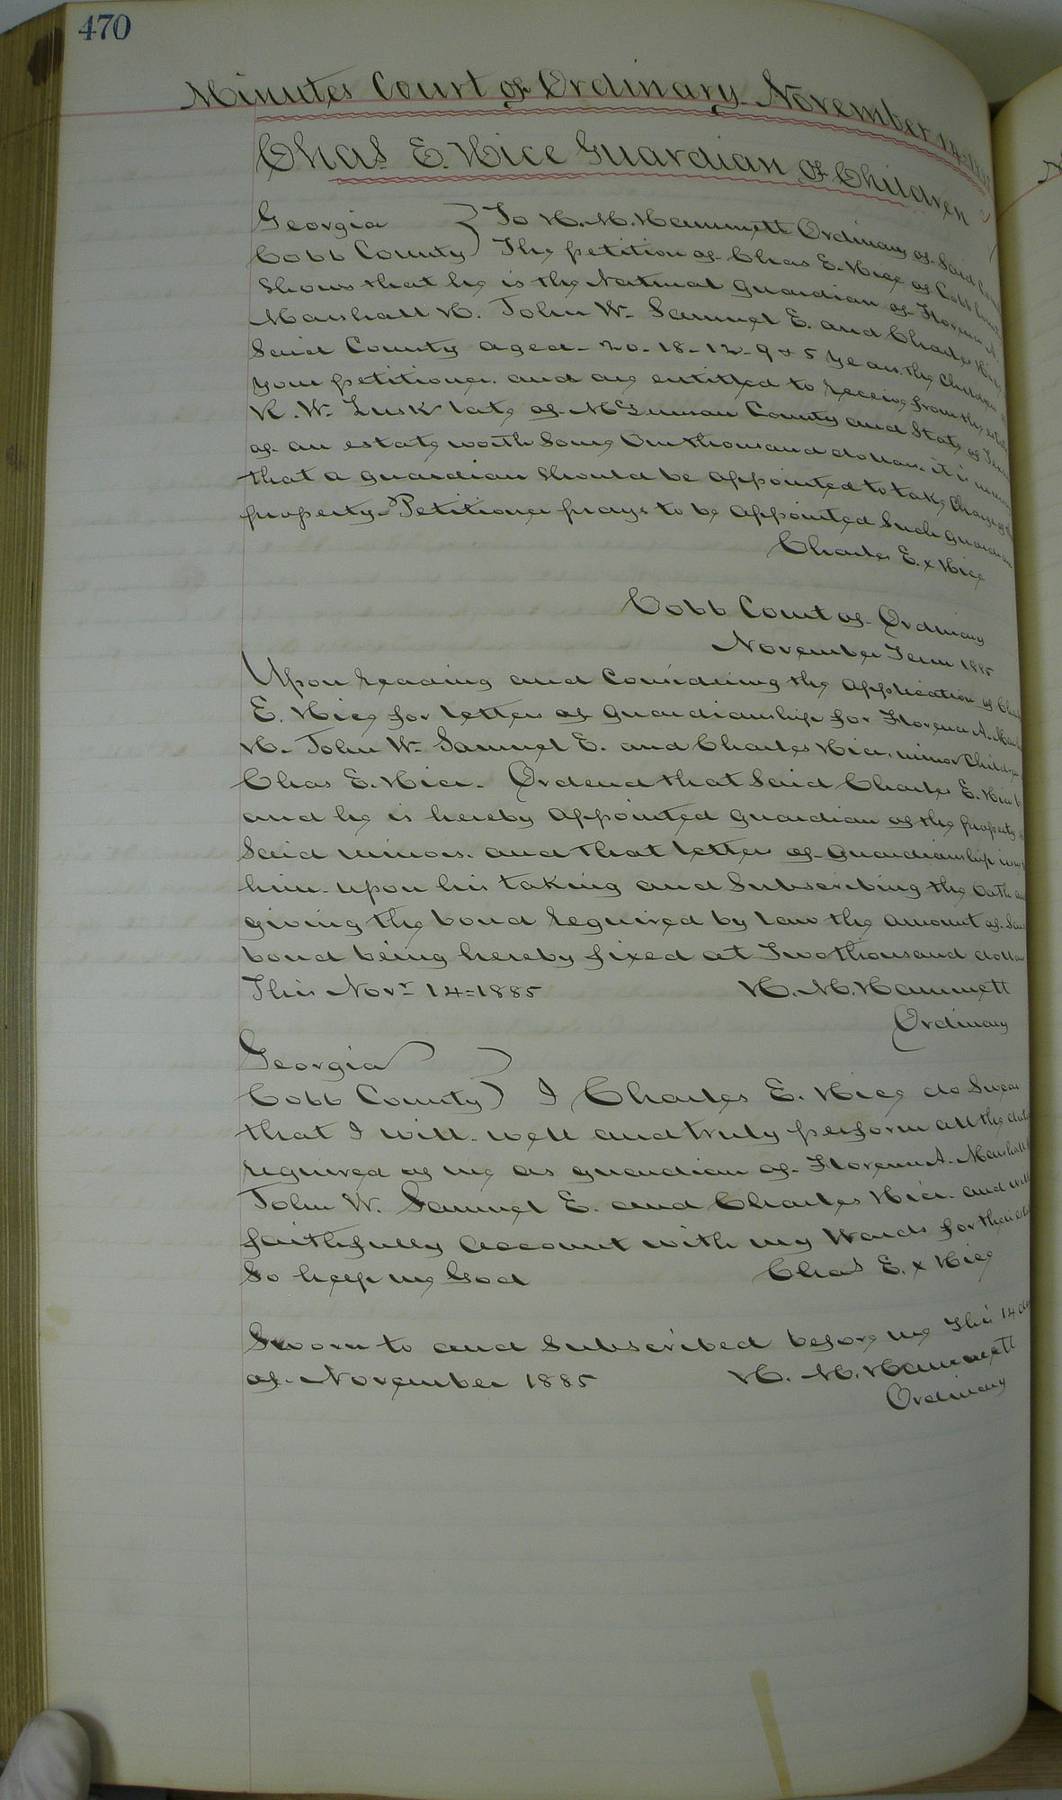 470
Minutes Court of Ordinary November 14=188
Chas E. Hice Guardian of Children
Georgia } To H. M. Hammett Ordinary of Said
Cobb County) The petition of Chas E. Hice of Cobb
Shows that he is the Natural guardian of Florence A.
Marshall H. John W. Samuel E. and Charles Hice
Said County aged 20-18-12-9 & 5 years. the Children
your petitioner. and are entitled to receive from the
R. W. Lusk late of County and State of
of an estate worth Some One thousand dollars. it is
that a guardian Should be appointed to take Charge of
property. Petitioner prays to be appointed Such guardian
Charles E. x Hice
Cobb Court of Ordinary
November Term 1885
Upon reading and Considering the application of
E. Hice for letters of guardianship for Florence A.
H. John W. Samuel E. and Charles Hice. minor Children
Chas E. Hice. Ordered that Said Charles E. Hice
and he is hereby appointed guardian of the property
Said minors. and that letters of guardianship
him upon his taking and Subscribing the Oath
giving the bond required by law the amount of
bond being hereby fixed at Two thousand dollars
This Novr 14=1885 H. M. Hammett
Ordinary
Georgia )
Cobb County ) I Charles E. Hice do Swear
that I will well and truly perform all the
required of me as guardian of Florence A. Marshall
John W. Samuel E. and Charles Hice. and will
faithfully account with my Wards for their
So help me God Chas E. x Hice
Sworn to and Subscribed before me This 14
of November 1885 H. M. Hammett
Ordinary